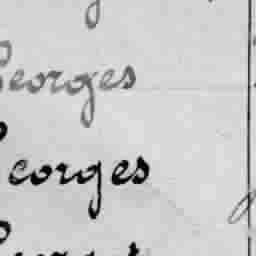 Georges
Georges